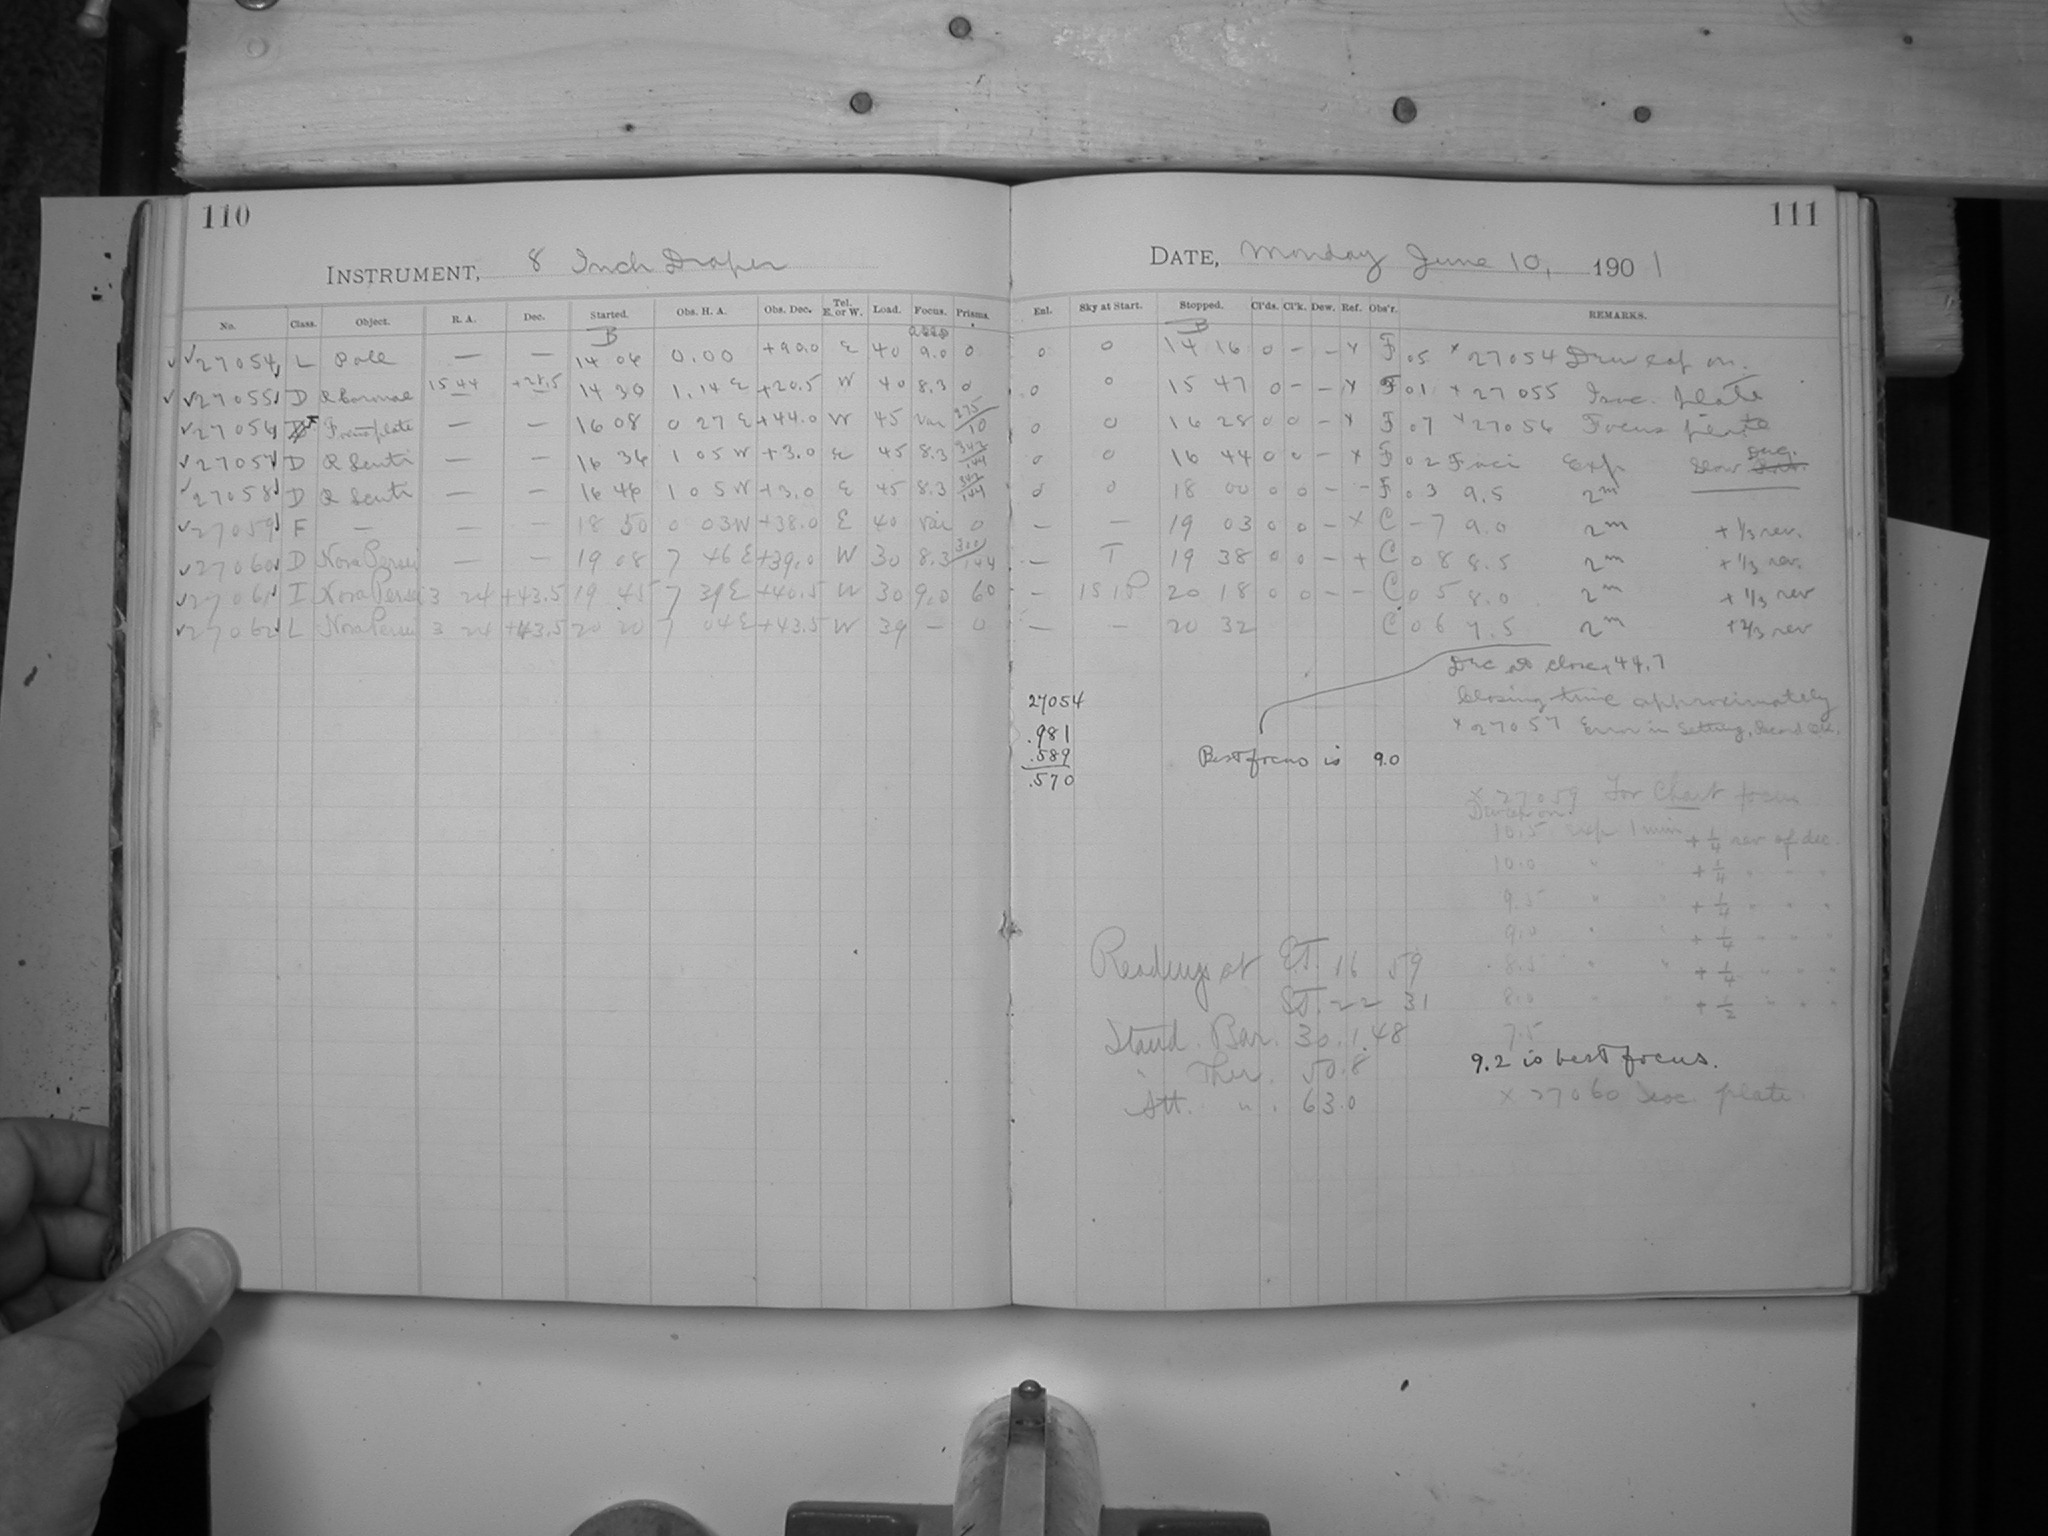 110
INSTRUMENT, 8 Inch Draper
No. Class. Object. R. A. Dec. Started. Obs. H. A. Obs. Dec. Tel. E. or W. Load. Focus. Prisms.
B
27054 L Pole — — 14 06 0.00 +90.0 E 40 9.0 0
27055 D R Coronae 15 44 +28.5 14 30 1.14 E +20.5 W 40 8.3 0
27056 F Focus plate — — 16 08 0 27 E +44.0 W 45 Var 275/10
27057 D R Scuti — — 16 36 1 05 W +3.0 E 45 8.3 343/144
27058 D R Scuti — — 16 46 1 05 W +3.0 E 45 8.3 343/144
27059 F — — — 18 50 0 03 W +38.0 E 40 Var 0
27060 D Nova Persei — — 19 08 7 46 E +39.0 W 30 8.3 300/144
27061 I Nova Persei 3 24 +43.5 19 45 7 39 E +40.5 W 30 9.0 60
27062 L Nova Persei 3 24 +43.5 20 20 7 04 E +43.5 W 39 — 0
111
DATE, Monday June 10, 1901
Enl. Sky at Start. Stopped. Cl'ds. Cl'k. Dew. Ref. Obs'r. REMARKS.
B
0 0 14 16 0 - - x F .05 x 27054 Dew cap on.
0 0 15 47 0 - - x F 01 x 27055 Isoc. plate
0 0 16 28 0 0 - x F .07 x 27056 Focus plate
0 0 16 44 0 0 - x F 02 Foci Exp Dec.
0 0 18 00 0 0 - - F 03 9.5 2m
— — 19 03 0 0 - x C - 7 9.0 2m + 1/3 rev.
— T 19 38 0 0 - + C 0 8 8.5 2m + 1/3 rev.
— 20 18 0 0 - - C 0 5 8.0 2m + 1/3 rev
— — 20 32 C 0 6 7.5 2m + 2/3 rev
Dec at close +44.7
Closing time approximately
x 27057 Error in Setting,
27054
.981
.589
.570
Best focus is 9.0
x 27059 For Chart focus
Dewcap on
10.5 Exp 1 min + 1/4 rev of dec.
10.0 " " + 1/4 " " "
9.5 " " + 1/4 " " "
9.0 " " + 1/4 " " "
8.5 " " + 1/4 " " "
8.0 " " + 1/2 " " "
7.5
9.2 is best focus.
x 27060 Isoc. plate
Readings at E.T. 16 59
S.T. 22 31
Stand. Bar. 30.148
" Ther. 50.8
Att. " . 63.0